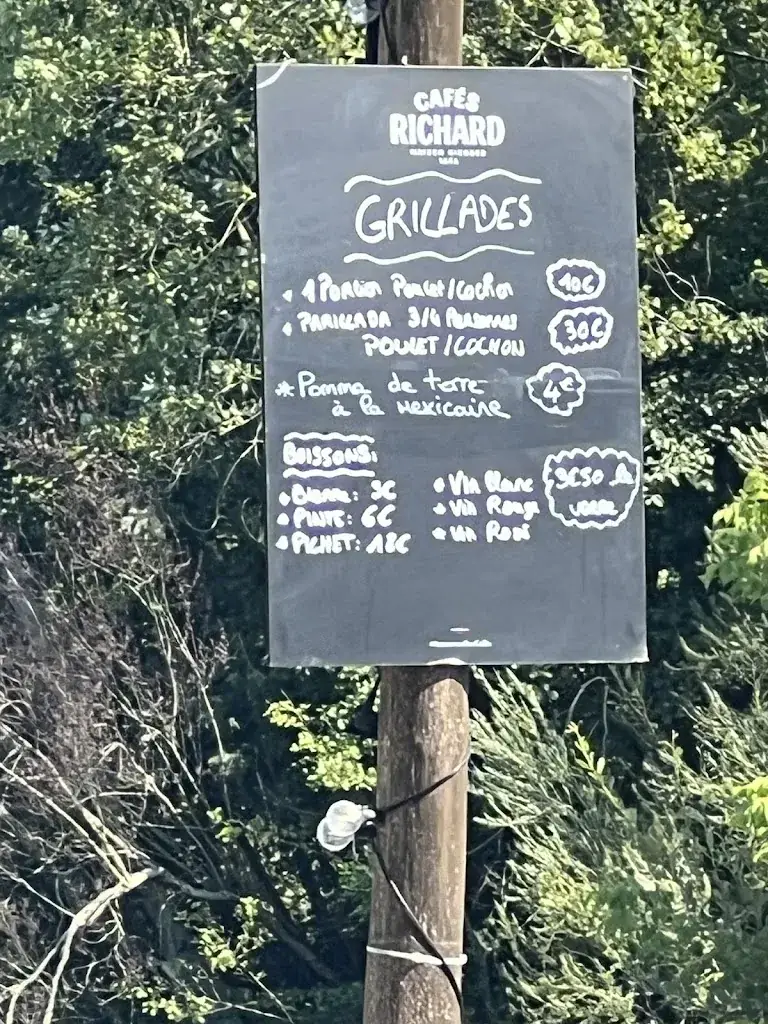 CAFÉS
RICHARD
GRILLADES
1 PORTION POULET/COCHON 10€
PARILLADA 3/4 PERSONNES 30€
POULET/COCHON
* Pomme de terre 4€
à la mexicaine
BOISSONS:
Bierre: 3€
PINTE: 6€
PICHET: 18€
Vin Blanc 3€50 le
Vin Rouge verre
Vin Rosé